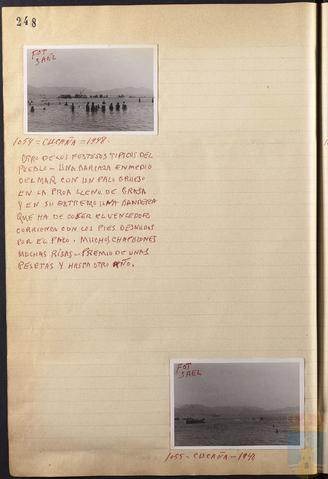 248
FOT
SAEZ
1054 = CUCAÑA = 1948.
OTRO DE LOS FESTEJOS TIPICOS DEL
PUEBLO - UNA BARCAZA EN MEDIO
DEL MAR CON UN PALO GRUESO
EN LA PROA LLENO DE GRASA
Y EN SU EXTREMO UNA BANDERA
QUE HA DE COGER EL VENCEDOR
CORRIENDO CON LOS PIES DESNUDOS
POR EL PALO. MUCHOS CHAPUZONES
MUCHAS RISAS - PREMIO DE UNAS
PESETAS Y HASTA OTRO AÑO.
FOT
SAEZ
1055 - CUCAÑA - 1948